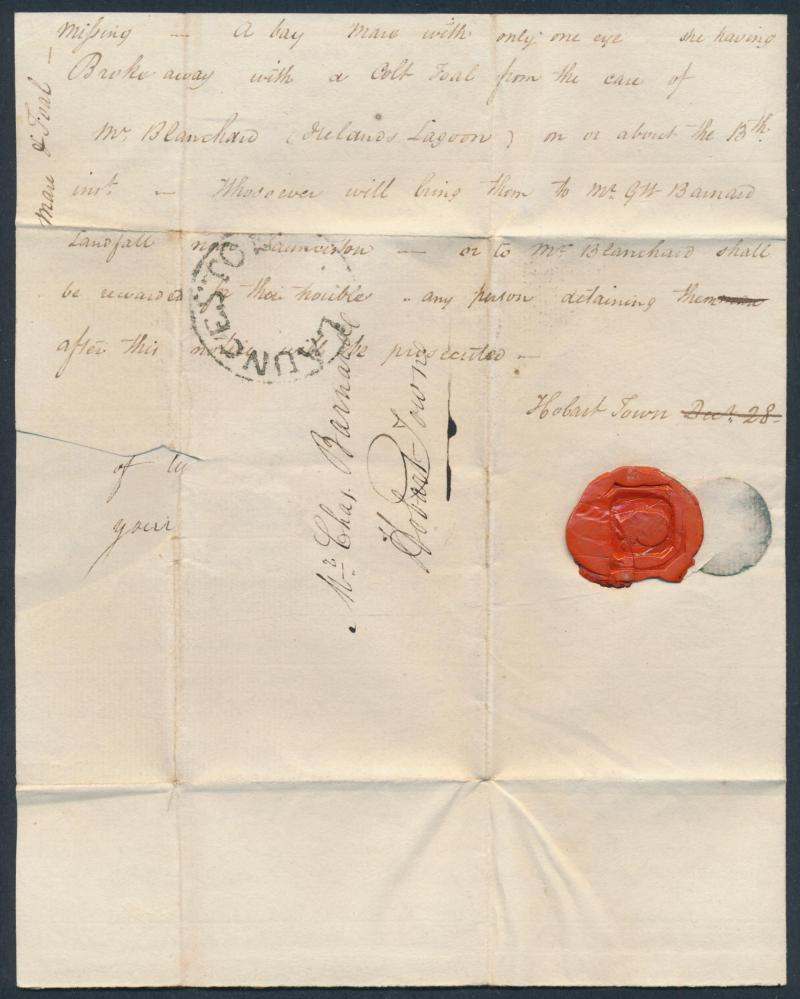 Missing — A bay mare with only one eye she having
Broke away with a Colt Foal from the care of
Mr. Blanchard (Irelands Lagoon) on or about the 13th.
inst. — Whosoever will bring them to Mr. GW Barnard
Landfall near Launceston — or to Mr Blanchard shall
be rewarded for their trouble - any person detaining them
after this notice will be prosecuted —
Hobart Town Dec. 28-
Mare & Foal —
LAUNCESTON
Mr. Chas. Barnard
Hobart Town
of
your